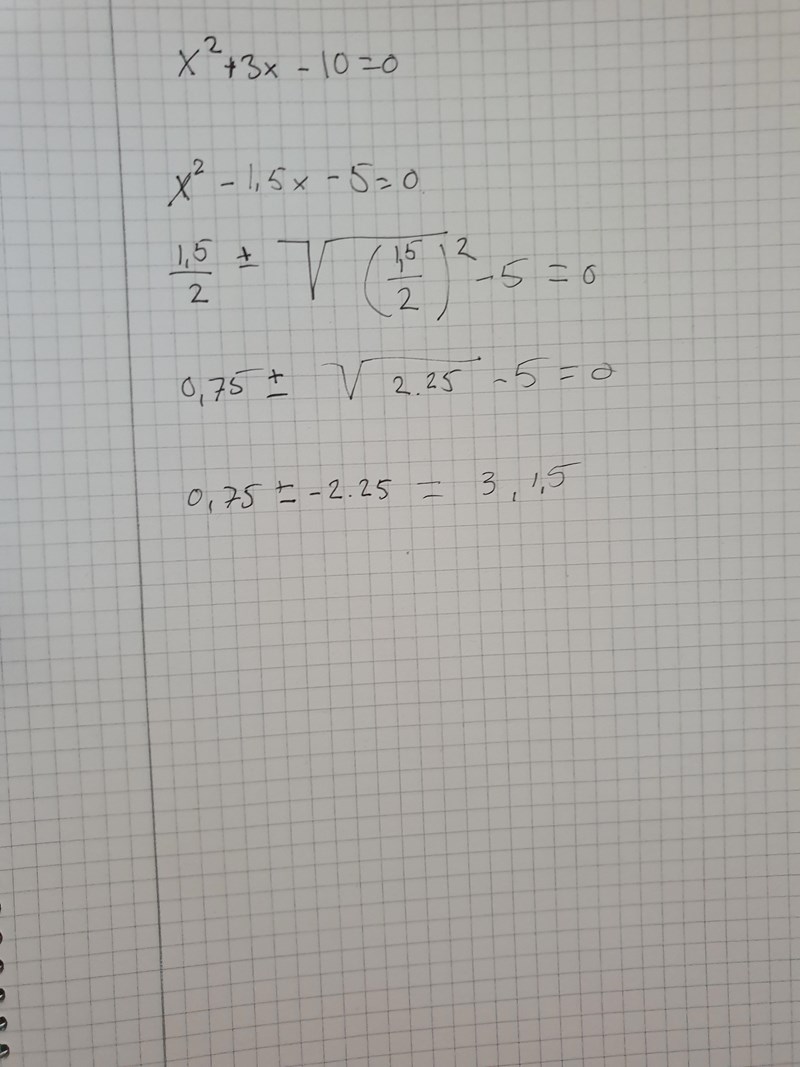 x² + 3x - 10 = 0
x² - 1,5x - 5 = 0
1,5/2 ± √(1,5/2)² - 5 = 0
0,75 ± √2.25 - 5 = 0
0,75 ± -2.25 = 3, 1,5